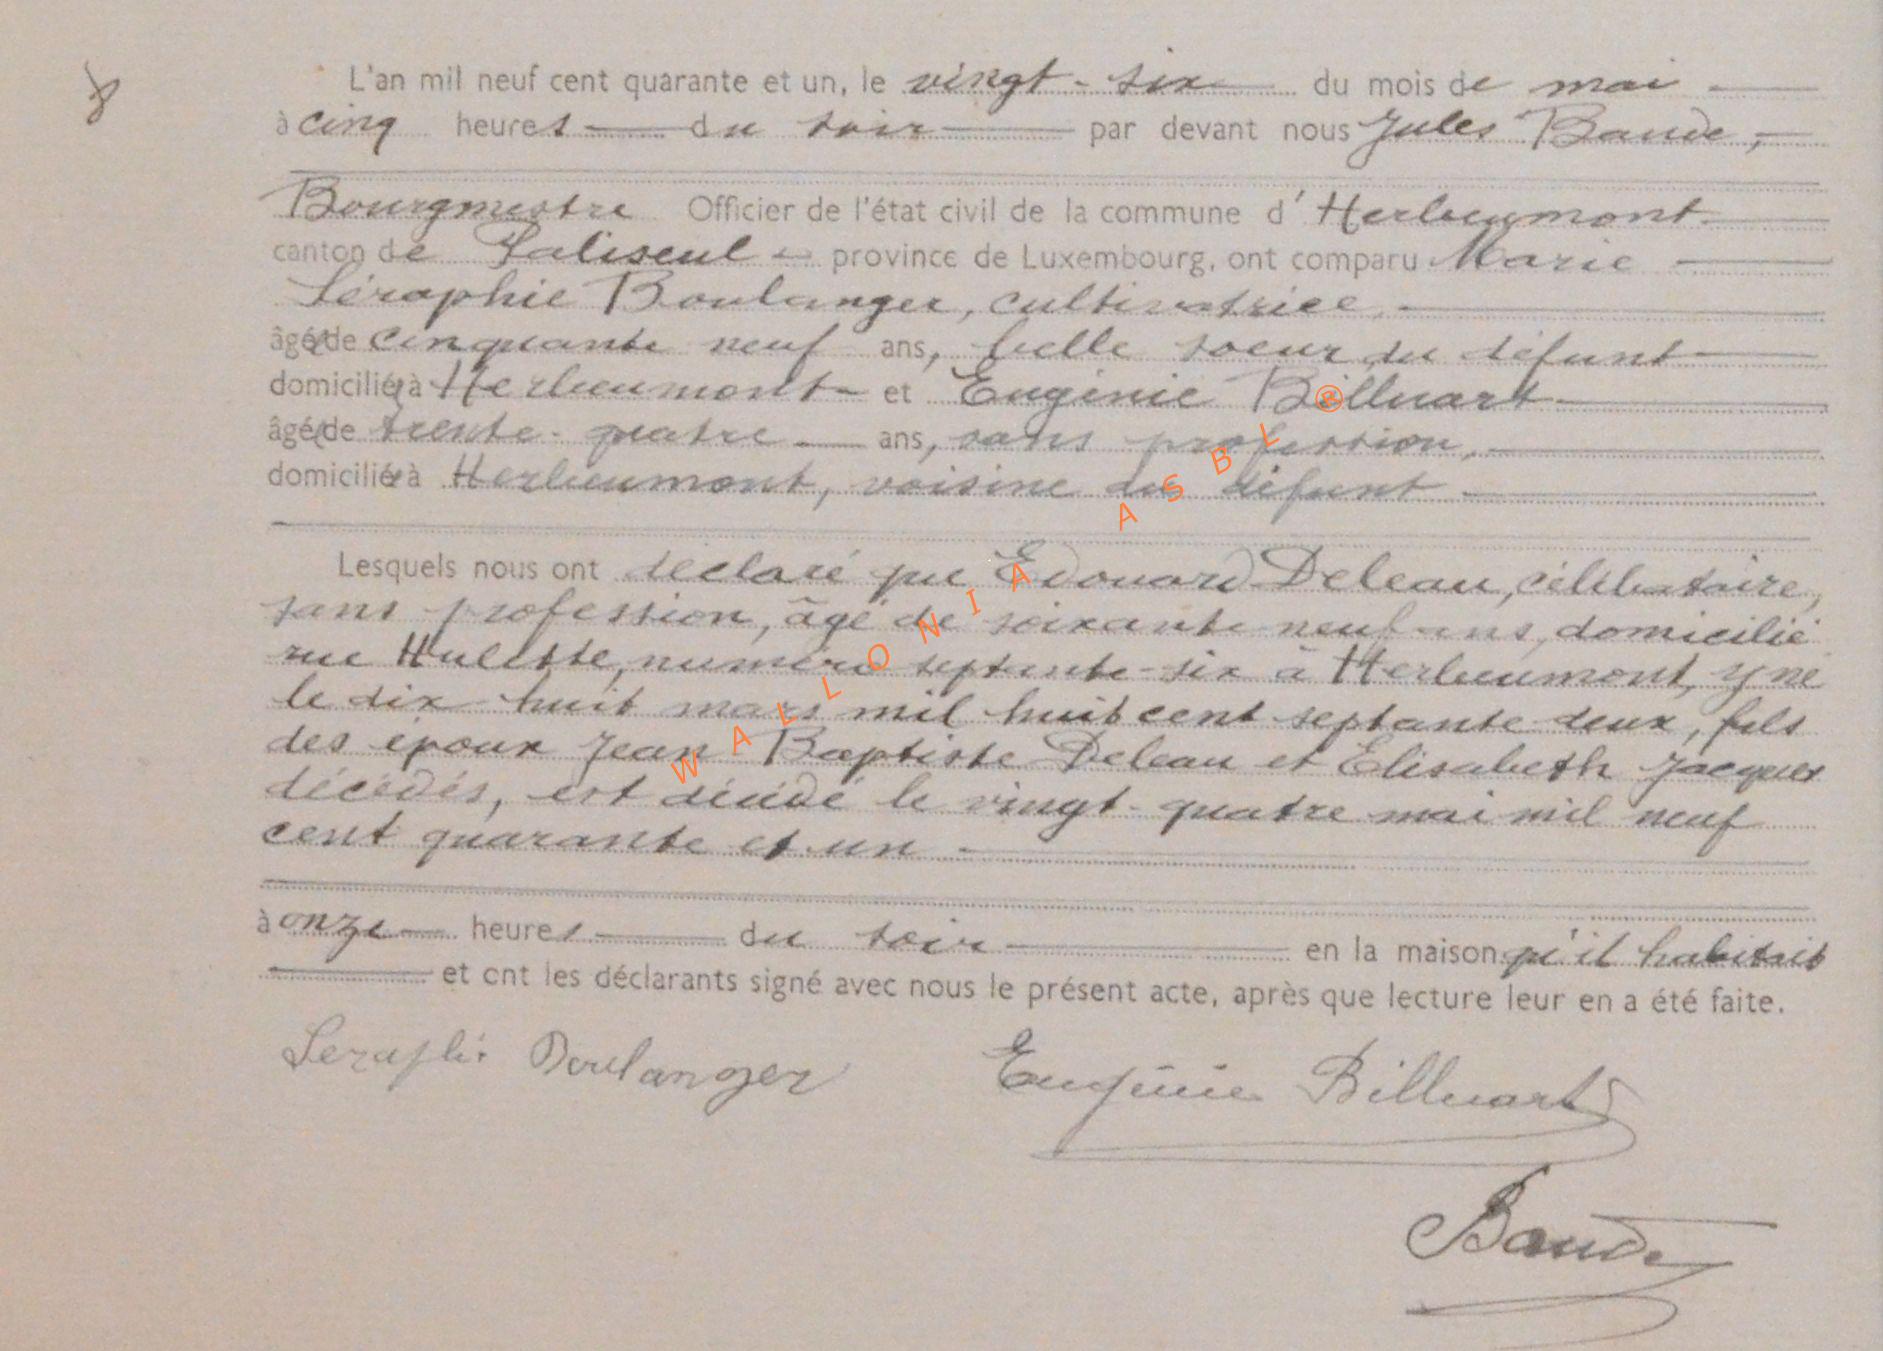 8
L'an mil neuf cent quarante et un, le vingt-six du mois de mai
à cinq heures du soir par devant nous Jules Baude,
Bourgmestre Officier de l'état civil de la commune d'Herbeumont
canton de Paliseul province de Luxembourg, ont comparu Marie
Séraphie Boulanger, cultivatrice,
âgée de cinquante neuf ans, belle soeur du défunt
domiciliée à Herbeumont et Eugénie Billuart
âgée de trente-quatre ans, sans profession,
domiciliée à Herbeumont, voisine du défunt
Lesquels nous ont déclaré que Edouard Deleau, célibataire,
sans profession, âgé de soixante neuf ans, domicilié
rue Hulette, numéro septante-six à Herbeumont, y né
le dix huit mars mil huit cent septante deux, fils
des époux Jean Baptiste Deleau et Elisabeth Jacques
décédés, est décédé le vingt-quatre mai mil neuf
cent quarante et un
à onze heures du soir en la maison qu'il habitait
et ont les déclarants signé avec nous le présent acte, après que lecture leur en a été faite.
Seraphie Boulanger Eugénie Billuart
Baude
WALLONIA ASBL ®